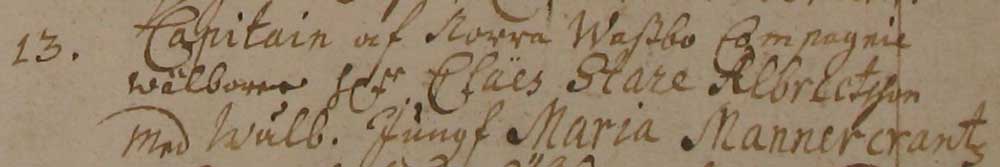 13. Capitain af Norra Waßbo Compagnie
wälborne H:r Claës Stare Albrectsson
med Wälb. Jungf Maria Mannercrantz